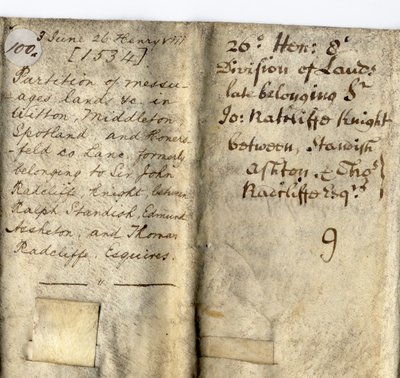 100.
9 June 26 Henry VIII
[1534]
Partition of messu-
ages lands &c. in
Witton, Middleton
Shotland and Honers-
-feld co Lanc, formerly
belonging to Sir John
Radcliffe Knight between
Ralph Standish, Edmund
Assheton, and Thomas
Radcliffe. Esquires.
26º Hen: 8º
Division of Lands
late belonging Sr
Jo: Ratcliffe Knight
between, Standish
Ashton & Thos
Radcliffe Esqrs
9